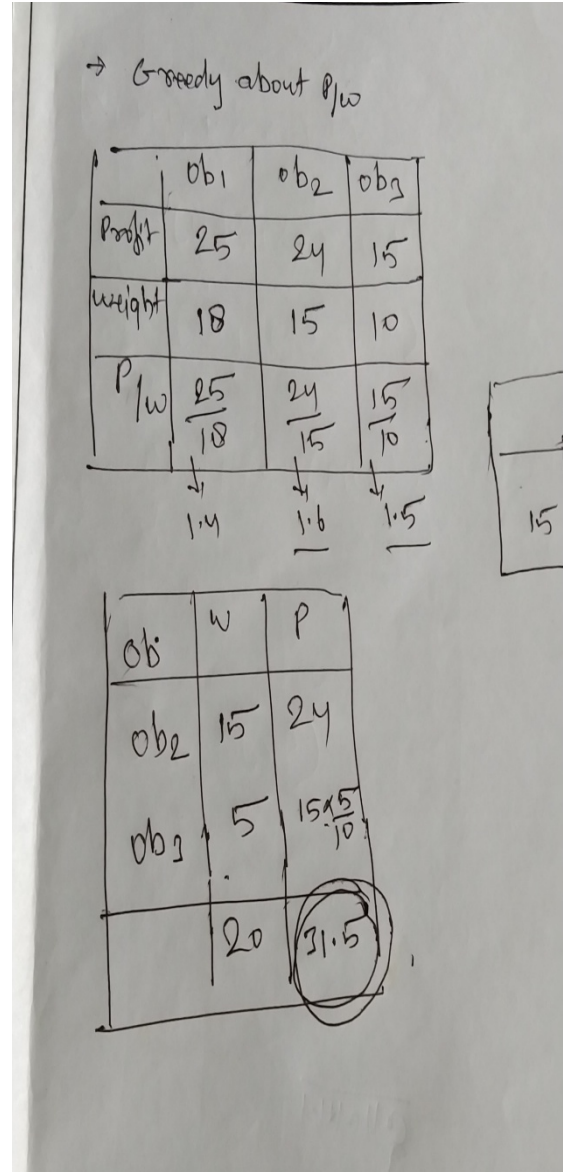 → Greedy about P/w
ob1 ob2 ob3
Profit 25 24 15
weight 18 15 10
P/w 25/18 24/15 15/10
1.4 1.6 1.5
15
Ob W P
ob2 15 24
ob3 5 15×5/10
20 31.5